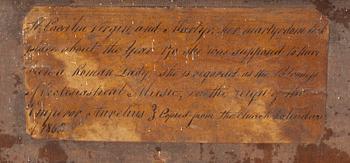 St Cecilia virgin and Martyr, her martyrdom took
place about the Year 170 she was supposed to have
been a Roman Lady, she is regarded as the Patroness
of Ecclesiastical Music, in the reign of the
Emperor Aurelius & Copied from the Church Calendar
of 186